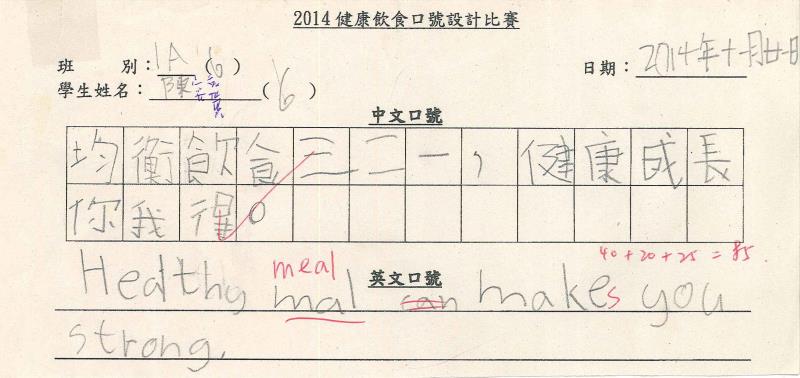 2014健康飲食口號設計比賽
班　別：1A (6)
日期：2014年十一月廿日
學生姓名：陳 (6)
中文口號
均衡飲食三二一，健康成長
你我得。
40+20+25=85.
英文口號
Healthy mal meal can makes you
strong.